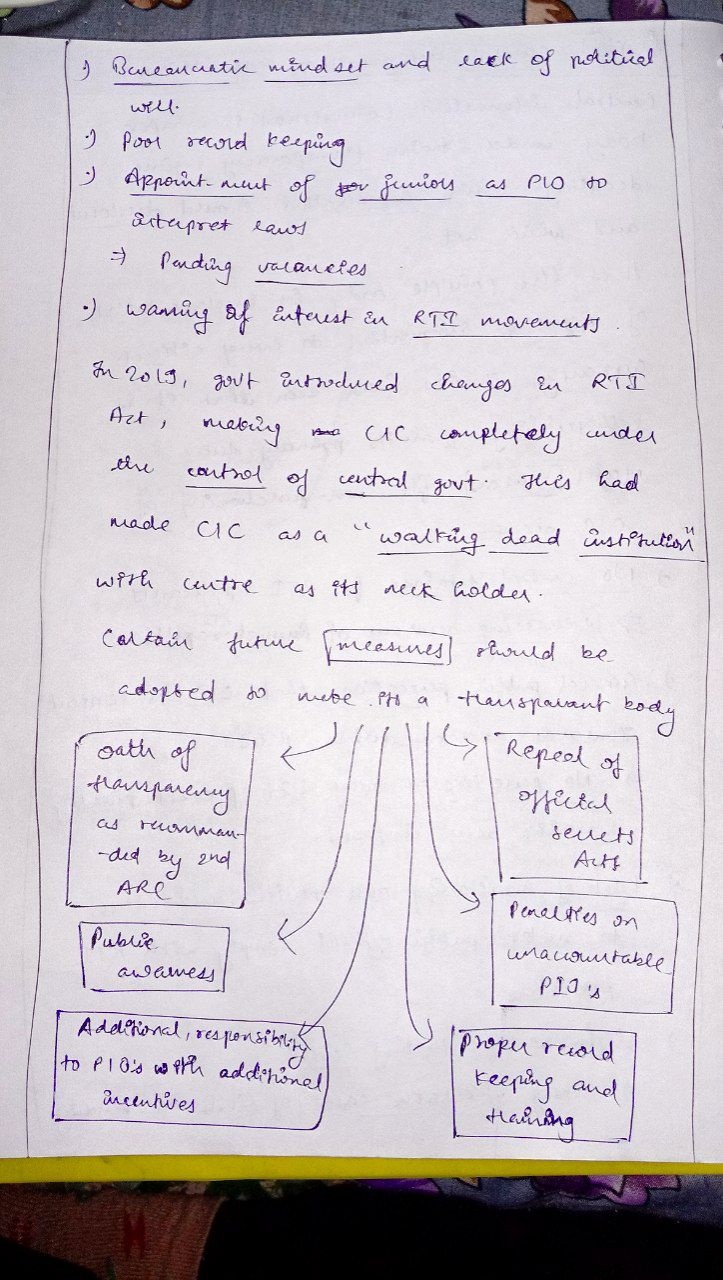 ·) Bureaucratic mindset and lack of political
will.
·) Poor record keeping
·) Appoint-ment of juniors as PIO to
interpret laws
⇒ Pending vacancies
·) Wanning of interest in RTI movements.
In 2019, govt introduced changes in RTI
Act, making CIC completely under
the control of central govt. This had
made CIC as a "walking dead institution"
with centre as its neck holder.
Certain future measures should be
adopted to make its a transparant body
Oath of
transparency
as recomman-
-ded by 2nd
ARC
Repeal of
official
secrets
Acts
Public
awarness
Penalties on
unaccountable
PIO's
Additional, responsibility
to PIO's with additional
incentives
Proper record
keeping and
training